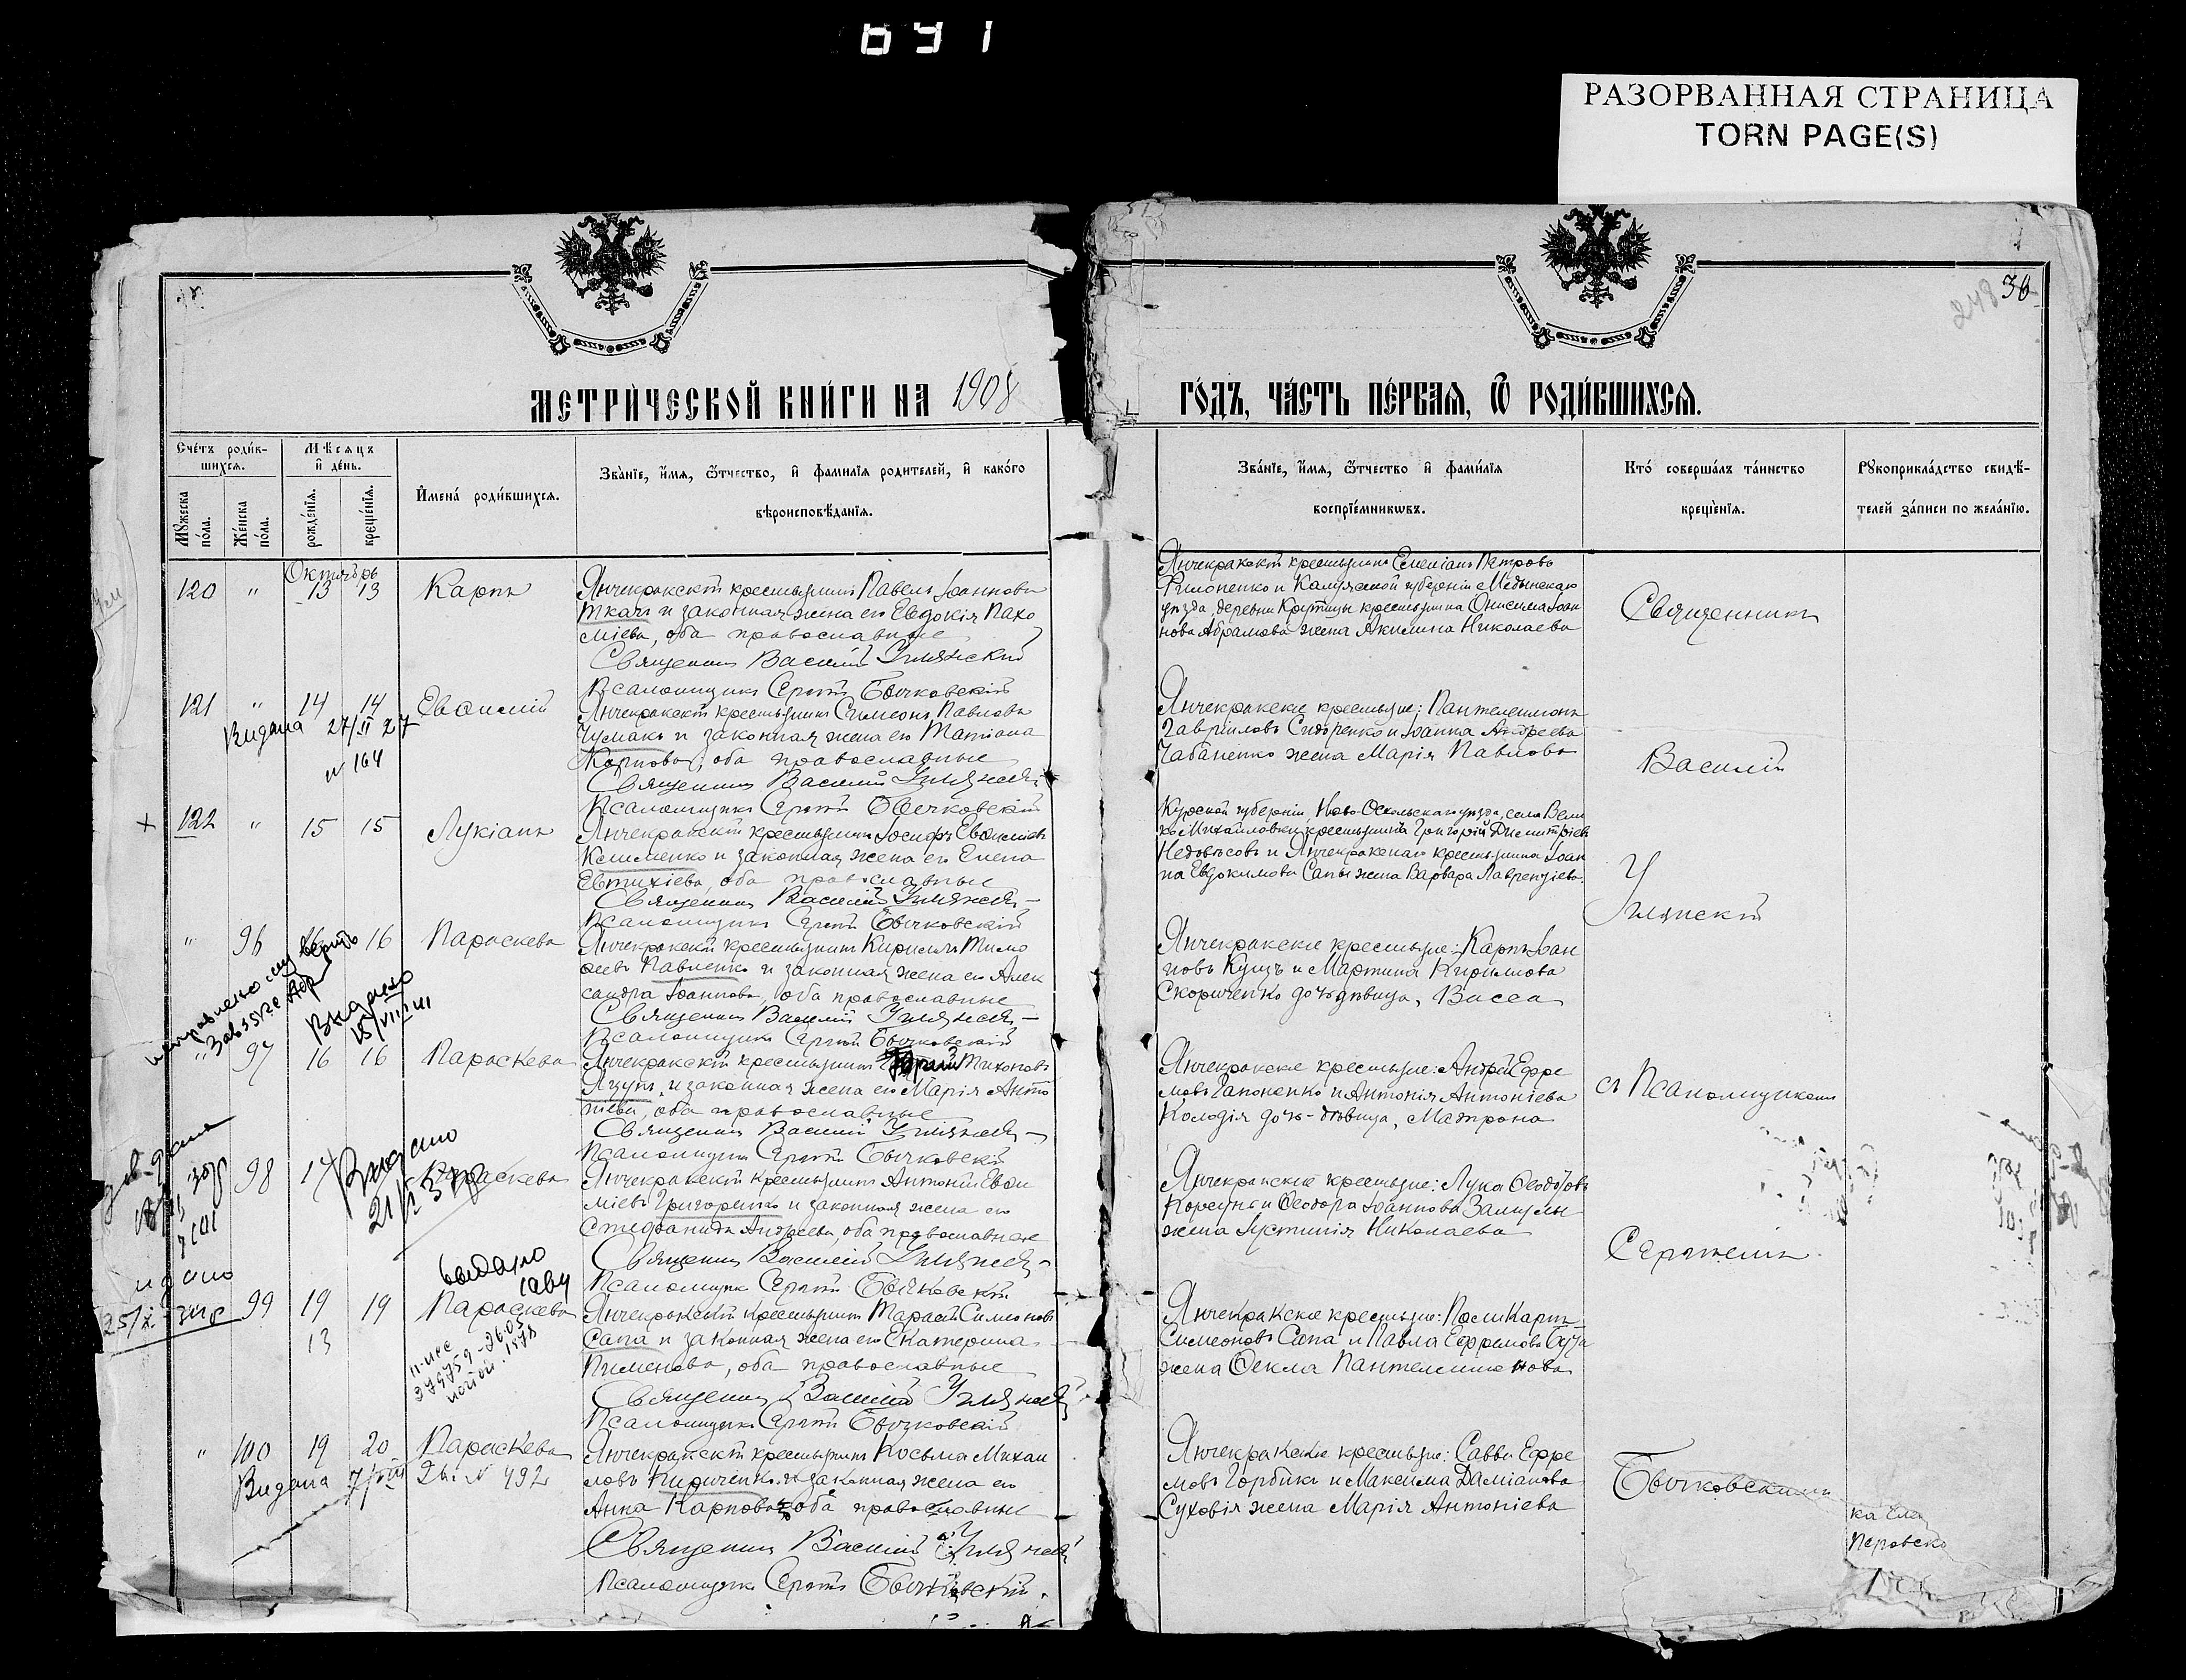 691
РАЗОРВАННАЯ СТРАНИЦА
TORN PAGE(S)
248 36
МЕТРИ́ЧЕСКОЙ КНИ́ГИ НА 1908
ГО́ДЪ, ЧА́СТЬ ПЕ́РВАЯ, Ѿ РОДИ́ВШИХСЯ.
Сче́тъ роди́в-
шихся.
Мѣсяцъ
и де́нь.
Имена́ роди́вшихся.
Зва́нїе, и́мя, ѻ́тчество, и фами́лїя родителей, и како́го
вѣроисповѣ́данїя.
Мꙋ́жеска
по́ла.
Же́нска
по́ла.
рожде́нїя.
креще́нїя.
Зва́нїе, и́мя, ѻ́тчество и фами́лїя
воспрїе́мникѡвъ.
Кто́ соверша́лъ та́инство
креще́нїя.
Рꙋкоприкла́дство свидѣ́-
телей за́писи по жела́нїю.
Октябрь
120 " 13 13 Карпъ
Янчекракскій крестьянинъ Павелъ Іоанновъ
Ткачъ и законная жена его Евдокія Пахо
міева, оба православные
Священникъ Василій Углянскій
Псаломщикъ Сергій Бычковскій
Янчекракскій крестьянинъ Емеліанъ Петровъ
Филоненко и Калужской губерніи Медынскаго
уѣзда, деревни Крутицы крестьянина Онисима Іоан
нова Абрамова жена Акилина Николаева
Священникъ
121 " 14 14 Евѳимій
Видана 27/II 27
№ 164
Янчекракскій крестьянинъ Симеонъ Павловъ
Чумакъ и законная жена его Татіана
Карпова, оба православные
Священникъ Василій Углянскій
Псаломщикъ Сергій Бычковскій
Янчекракскіе крестьяне: Пантелеимонъ
Гавріиловъ Сидоренко и Іоанна Андреева
Чабаненко жена Марія Павлова
Василій
+ 122 " 15 15 Лукіанъ
Янчекракскій крестьянинъ Іосифъ Евѳиміевъ
Клименко и законная жена его Елена
Евтихіева, оба православные
Священникъ Василій Углянскій
Псаломщикъ Сергій Бычковскій
Курской губерніи, Ново-Оскольскаго уѣзда, села Вели
ко Михайловки крестьянинъ Григорій Димитріевъ
Недовѣсовъ и Янчекракскаго крестьянина Іоан
на Евдокимова Сапы жена Варвара Лаврентіева
Углянскій
" 96 16 Параскева
Видано
Янчекракскій крестьянинъ Кириллъ Тимо
ѳеевъ Павленко и законная жена его Алек
сандра Іоаннова, оба православные
Священникъ Василій Углянскій
Псаломщикъ Сергій Бычковскій
Янчекракскіе крестьяне: Карпъ Іоан
новъ Куцъ и Мартина Кириллова
Скориченко дочь дѣвица, Васса
" 97 16 16 Параскева
Янчекракскій крестьянинъ Тихоновъ
Яцунъ и законная жена его Марія Анто
ніева, оба православные
Священникъ Василій Углянскій
Псаломщикъ Сергій Бычковскій
Янчекракскіе крестьяне: Андрей Ефре
мовъ Гапоненко и Антонія Антоніева
Колодія дочь - дѣвица, Матрона
съ Псаломщикомъ
98 Параскева
Видано
Янчекракскій крестьянинъ Антоній Евѳи
міевъ Григоренко и законная жена его
Стефанида Андреева, оба православные
Священникъ Василій Углянскій
Псаломщикъ Сергій Бычковскій
Янчекракскіе крестьяне: Лука Ѳеодотовъ
Корсунъ и Ѳеодора Іоаннова
жена Іустинія Николаева
Сергіемъ
видано
99 19 19 Параскева
13
Янчекракскій крестьянинъ Тарасій Симеоновъ
Сапа и законная жена его Екатерина
Пименова, оба православные
Священникъ Василій Углянскій
Псаломщикъ Сергій Бычковскій
Янчекракскіе крестьяне: Поликарпъ
Симеоновъ Сапа и Павла Ефремова
жена Ѳекла Пантелеимонова
" 100 19 20 Параскева
Видана
Янчекракскій крестьянинъ Косьма Михаи
ловъ Кириченко и законная жена его
Анна Карпова, оба православные
Священникъ Василій Углянскій
Псаломщикъ Сергій Бычковскій.
Янчекракскіе крестьяне: Савва Ефре
мовъ Горбикъ и Максима Даміанова
Суховія жена Марія Антоніева
Бычковскимъ